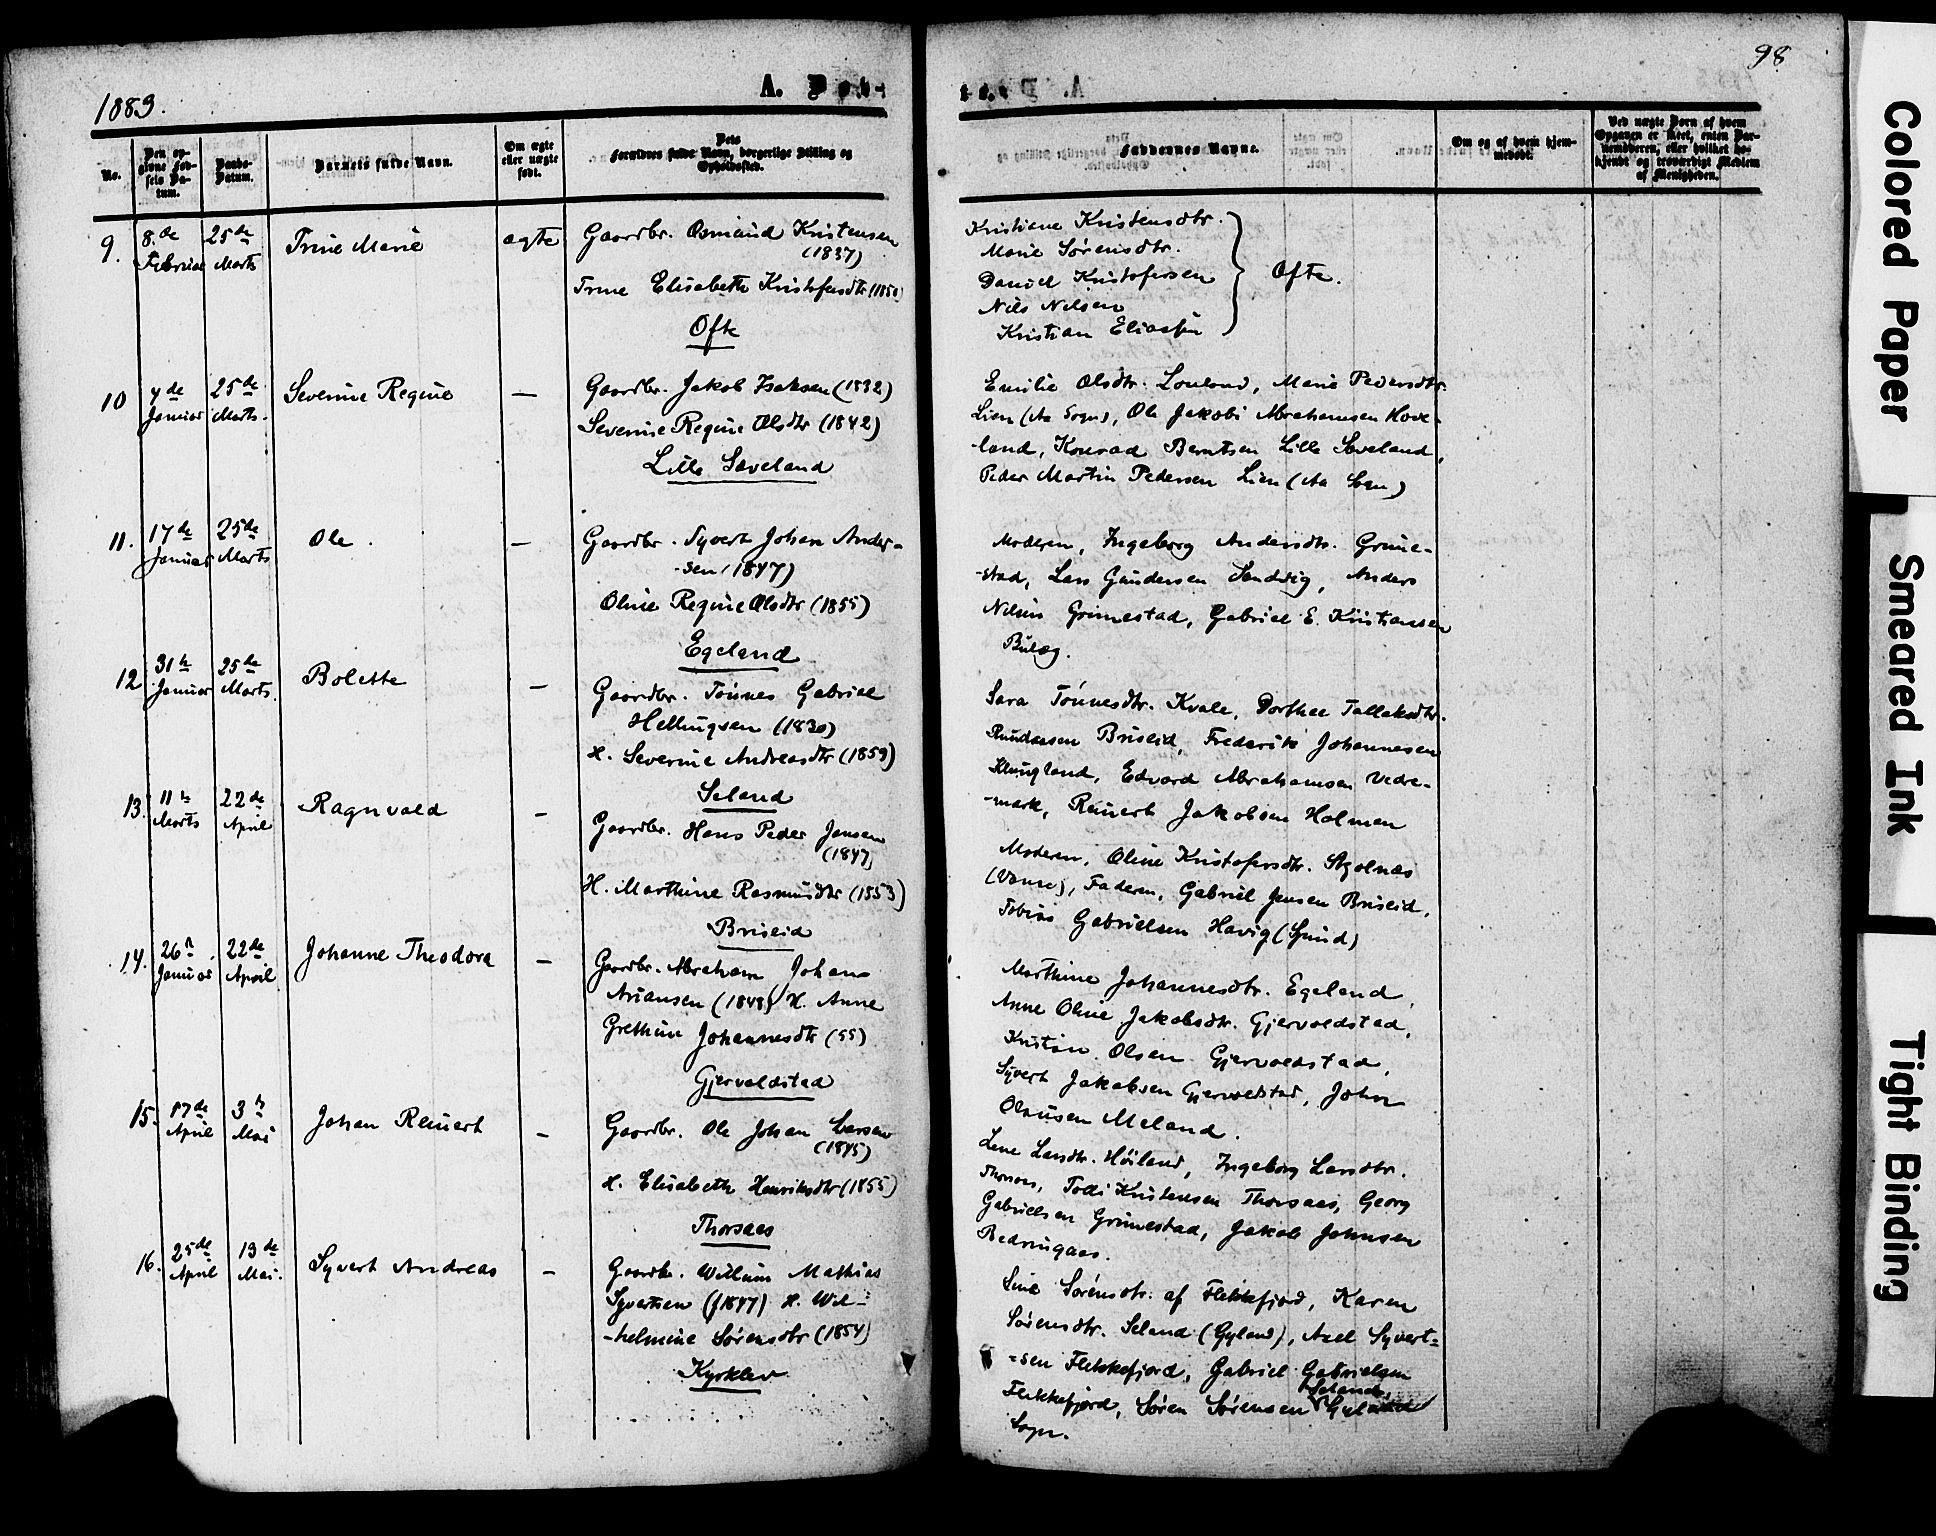 98
1883.
A. Fød-
No.
Den op-
givne Fød-
sels Da-
tum.
Daabs-
Datum.
Barnets fulde Navn.
Om ægte
eller uægte
født.
Dets
Forældres fulde Navn, borgerlige Stilling og
Opholdssted.
Faddernes Navne.
Om og af hvem hjem-
medøbt.
Ved uægte Børn af hvem
Opgaven er skeet, enten Bar-
nemoderen, eller hvilket be-
kjendt og troværdigt Medlem
af Menigheden.
9. 8.de Februar 25de Marts Trine Marie ægte Gaardbr. Osmund Kristensen
(1837)
Trine Elisabeth Kristofersdtr (1850)
Ofte
Kristiane Kristensdtr.
Marie Sørensdtr.
Daniel Kristofersen
Nils Nilsen
Kristian Eliassen
Ofte.
10 7de Januar 25de Marts. Severine Regine — Gaardbr. Jakob Isaksen (1832)
Severine Regine Olsdtr (1842)
Lille Sæveland
Emilie Olsdtr. Louland, Marie Pedersdtr.
Lien (Aa Sogn), Ole Jakobi Abrahamsen Hove-
-land, Konrad Berntsen Lille Sæveland,
Peder Martin Pedersen Lien (Aa Sogn)
11. 17de Januar 25de Marts Ole. — Gaardbr. Syvert Johan Ander-
-sen (1847)
Oline Regine Olsdtr (1855)
Egeland
Moderen, Ingeborg Andersdtr. Grime-
-stad, Lars Gundersen Sandvig, Anders
Nilsen Grimestad, Gabriel E. Kristiansen
Bulæg.
12 31te Januar 25de Marts. Bolette — Gaardbr. Tønnes Gabriel
Hellingsen (1830)
H. Severine Andreasdtr (1859)
Seland
Sara Tønnesdtr. Kvale, Dorthee Tallaksdtr.
Briseid, Frederik Johannesen
Klungland, Edvard Abrahamsen Vedre-
-mark, Reinert Jakobsen Holmen
13. 11te Marts 22de April Ragnvald — Gaardbr. Hans Peder Jensen
(1847)
H. Marthine Rasmusdtr (1853)
Briseid
Moderen, Oline Kristofersdtr. Stgolnæs
(Vanse), Faderen, Gabriel Jensen Briseid,
Tobias Gabrielsen Havig (Spind)
14. 26de Januar 22de April Johanne Theodora — Gaardbr. Abraham Johan
Ariansen (1848) H. Anne
Grethine Johannesdtr (55)
Gjervoldstad
Marthine Johannesdtr. Egeland,
Anne Oline Jakobsdtr. Gjervoldstad,
Kristian Olsen Gjervoldstad,
Syvert Jakobsen Gjervoldstad, John
Olausen Meland.
15. 17de April 3de Mai Johan Reinert — Gaardbr. Ole Johan Larsen
(1845)
H. Elisabeth Henriksdtr (1855)
Thorsaas
Lene Larsdtr. Høiland, Ingeborg Larsdtr.
Thorsaas, Tadi Kristensen Thorsaas, Georg
Gabrielsen Grimestad, Jakob Johnsen
Bedringaas.
16. 25de April 13de Mai. Syvert Andreas — Gaardbr. Willum Mathias
Syvertsen (1847) H. Wil-
-helmine Sørensdtr (1854)
Kyrklev
Sine Sørensdtr. af Flekkefjord, Karen
Sørensdtr. Seland (Gyland), Axel Syvert-
-sen Flekkefjord, Gabriel Gabrielsen
Flekkefjord, Søren Sørensen Seland, Gyland
Sogn.
Colored Paper
Smeared Ink
Tight Binding